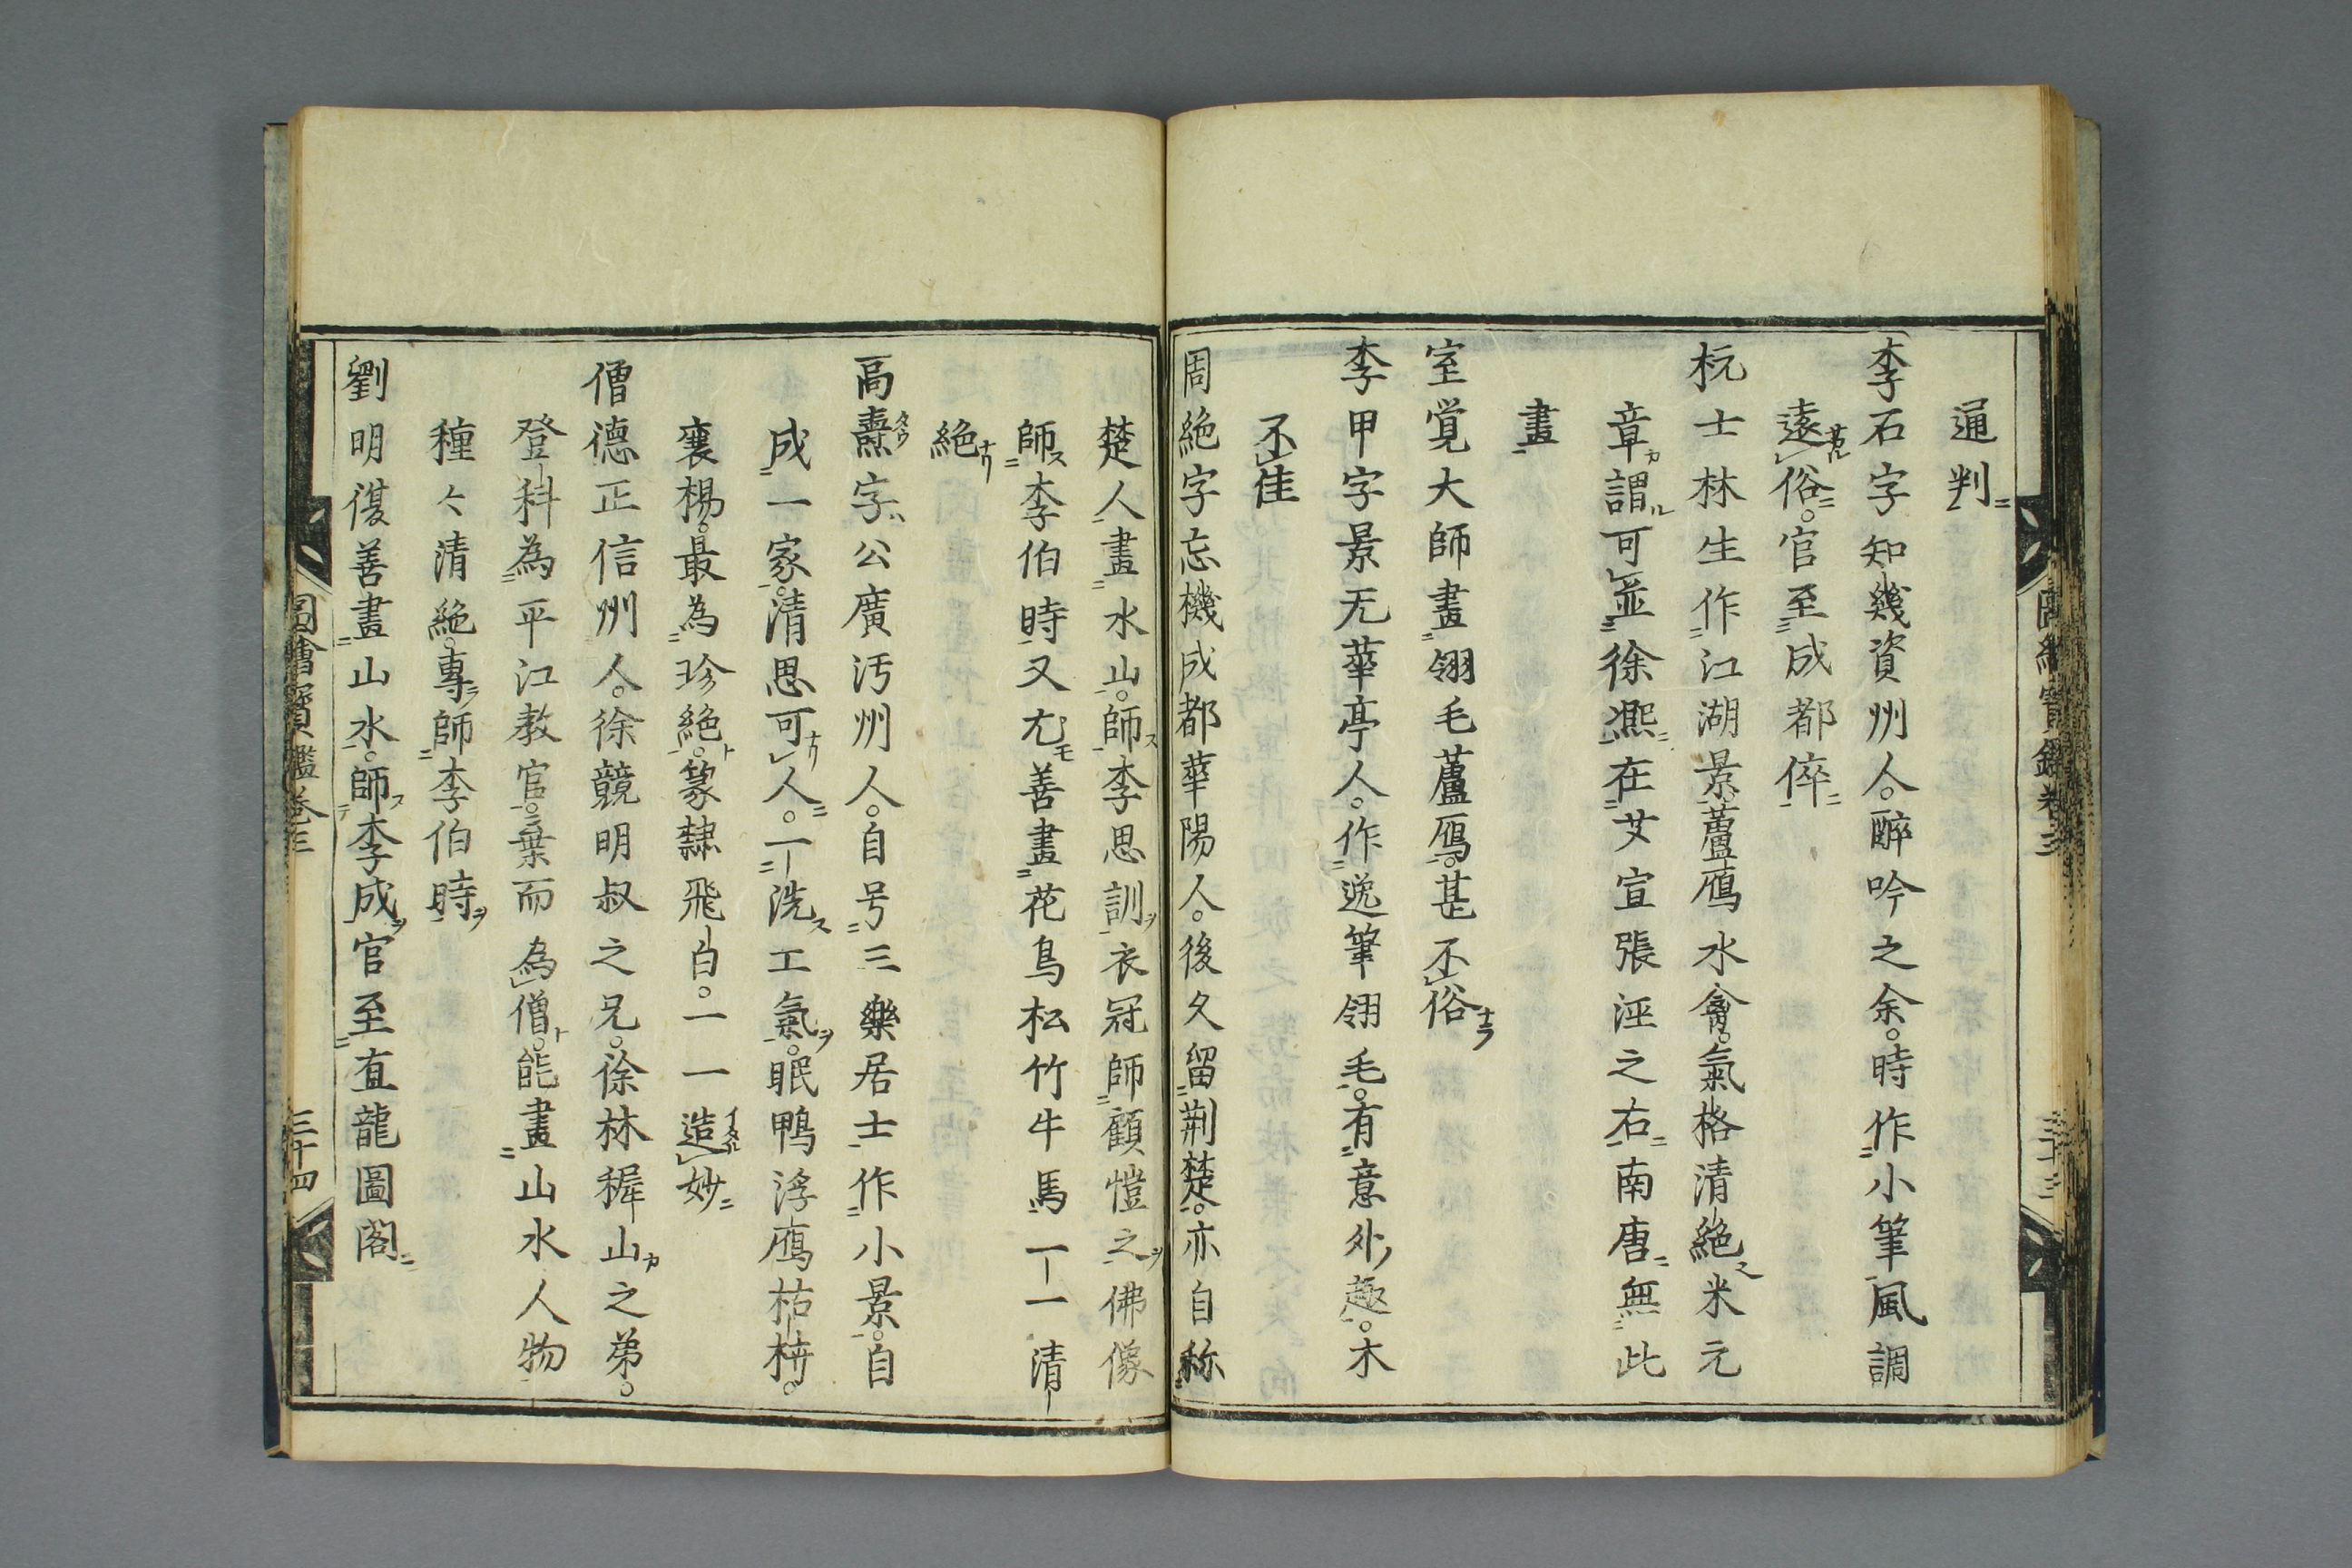 通判
李石字知幾資州人。醉吟之余。時作小筆風調
遠俗。官至成都倅
杬士林生作江湖景蘆鴈水禽。氣格清絶米元
章謂可並徐凞在艾宣張涇之右南唐無此
畫
室覚大師畫翎毛蘆鴈。甚不俗
李甲字景无華亭人。作逸筆翎毛。有意外趣。木
不佳
周絶字忘機成都華陽人。後久留荆楚。亦自称
楚人畫水山。師李思訓衣冠師顧愷之佛像
師李伯時又尤善畫花鳥松竹牛馬一一清
絶
髙燾字公廣沔州人。自号三樂居士作小景。自
成一家。清思可人。一洗工氣。眠鴨浮鴈枯枿。
襄楊。最為珍絶。篆隷飛白。一一造妙
僧德正信州人。徐競明叔之兄。徐林穉山之弟。
登科為平江教官。棄而為僧。能畫山水人物
種々清絶。專師李伯時
劉明復善畫山水。師李成官至直龍圖閣
圖繪寳鑑卷三
三十四